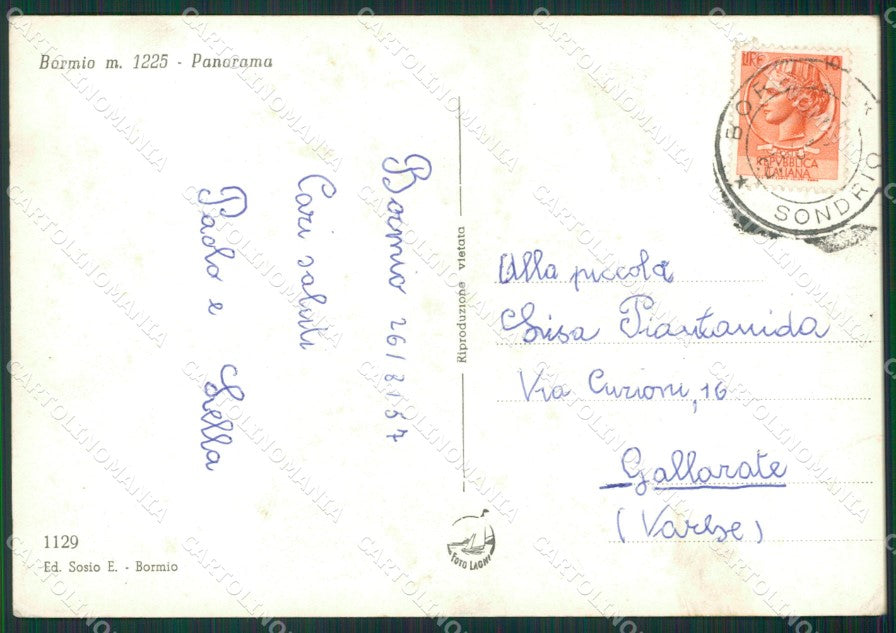 Bormio m. 1225 - Panorama
Bormio 26/8/57
Cari saluti
Paolo e Lella
1129
Ed. Sosio E. - Bormio
Riproduzione vietata
FOTO LAGHI
LIRE 10
REPVBBLICA
ITALIANA
SONDRIO
Alla piccola
Lisa Piantanida
Via Curioni, 16
Gallarate
(Varese)
CARTOLINOMANIA